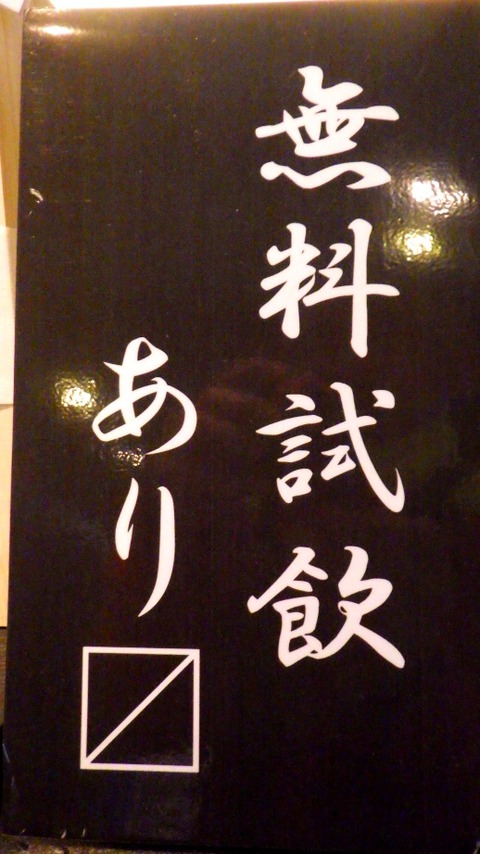 無料試飲
あり〼